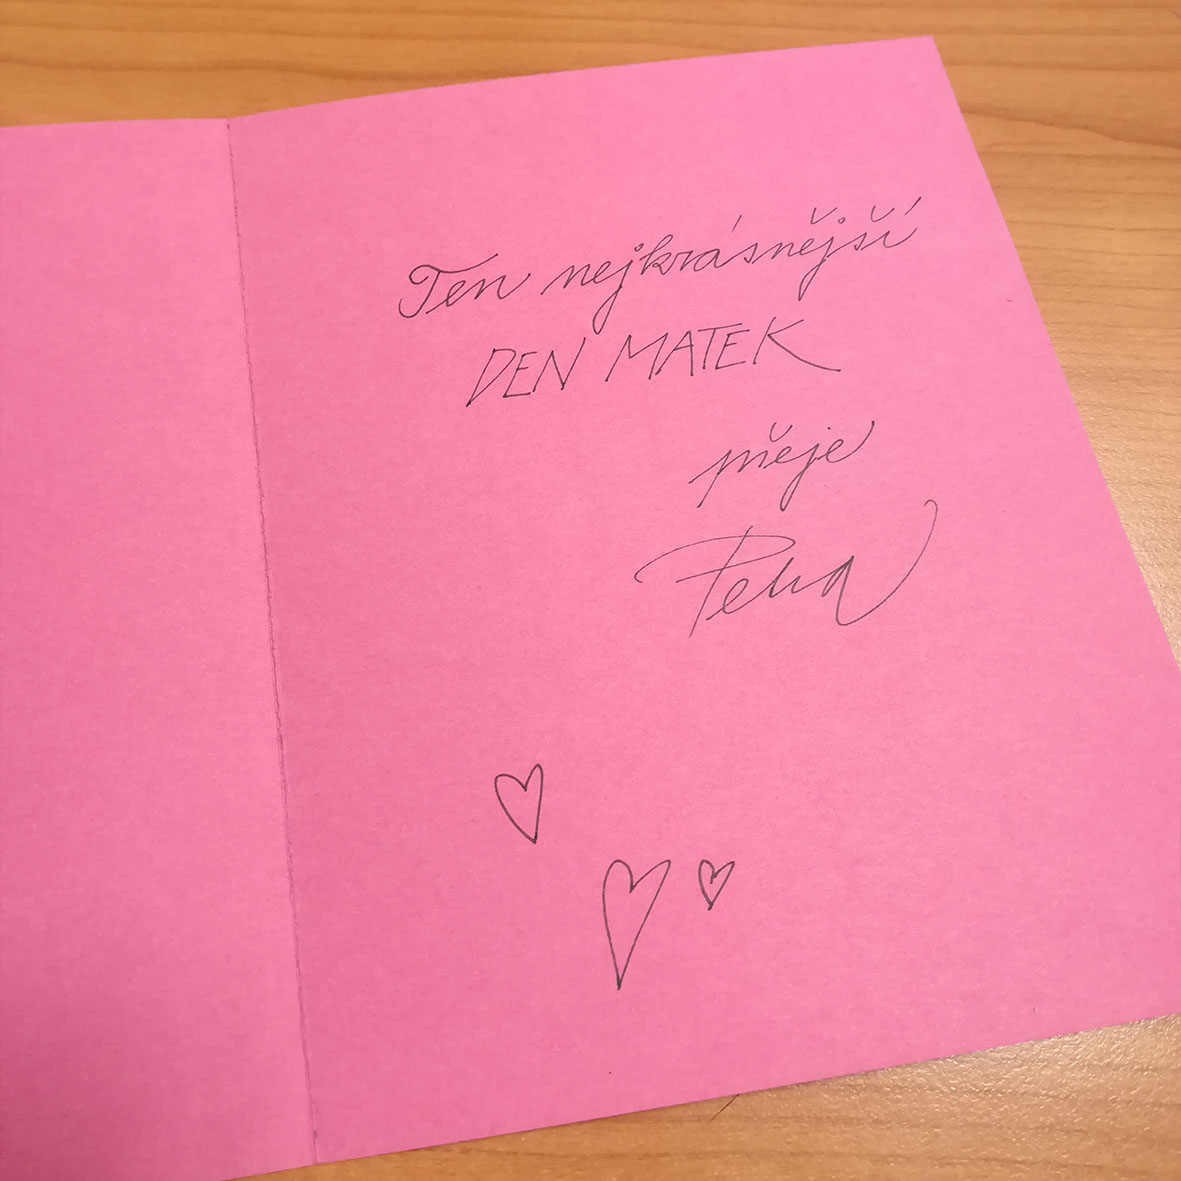 Ten nejkrásnější
DEN MATEK
přeje
Petra